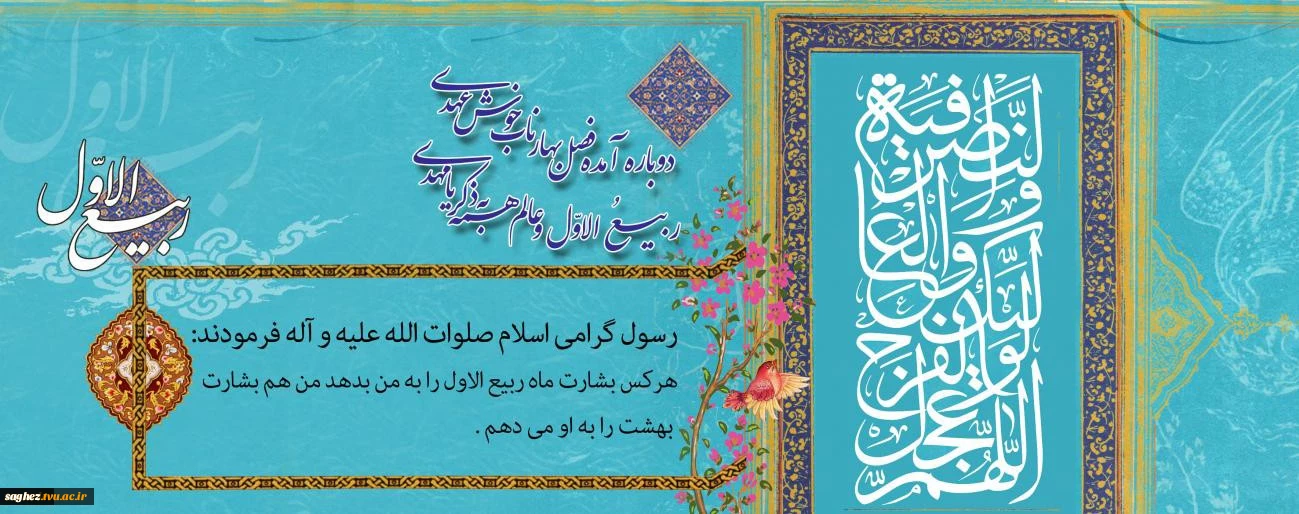 دوباره آمده فصل بهار ناب خوش عهدی
ربیعُ الاوّل و عالم همه به ذکر یا مهدی
ربیع الاوّل
رسول گرامی اسلام صلوات الله علیه و آله فرمودند:
هرکس بشارت ماه ربیع الاول را به من بدهد من هم بشارت
بهشت را به او می دهم .
اللّهُمَّ عَجِّل لِوَلیِّکَ الفَرَج وَالعافیَةَ وَالنَّصر
ربیع الاوّل
saghez.tvu.ac.ir